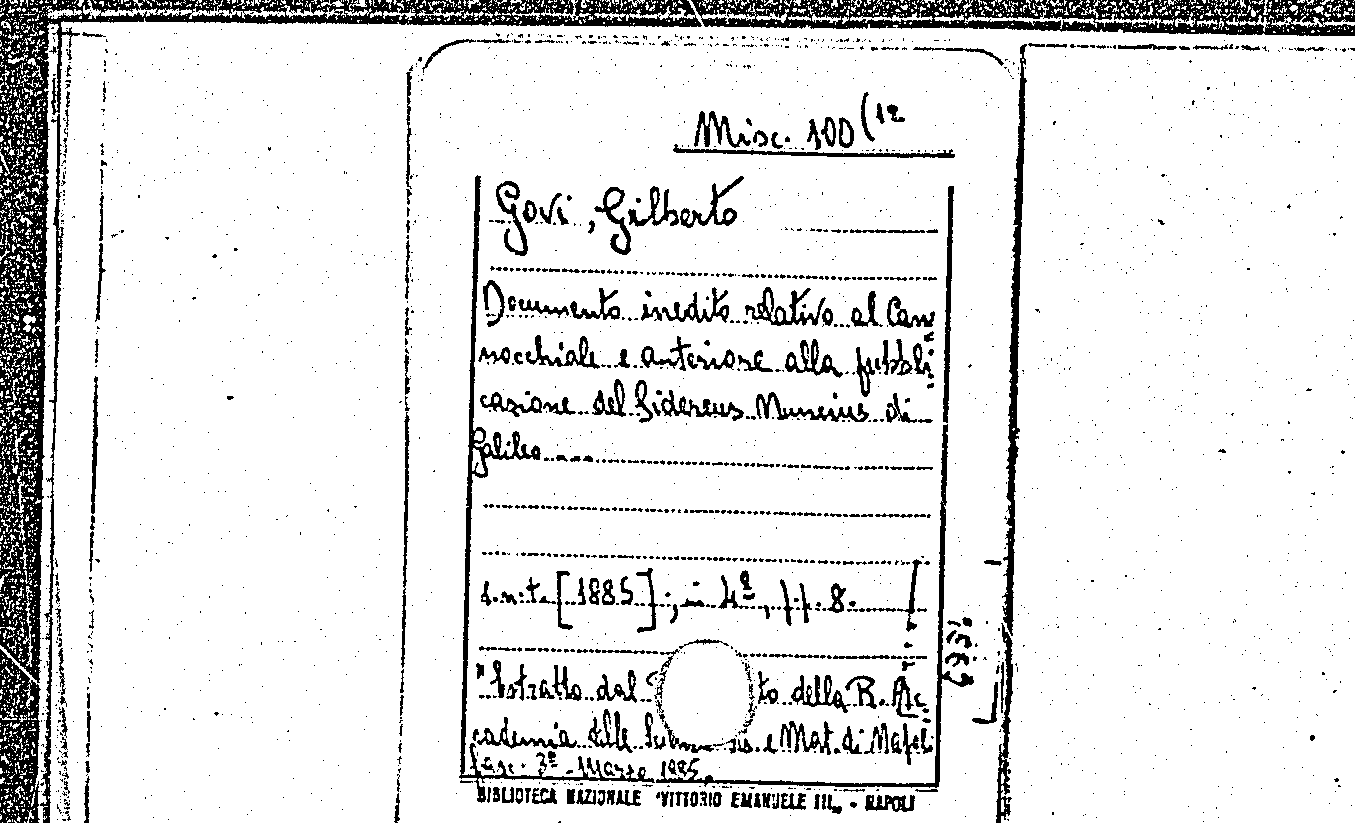 Misc. 100 (12
Govi, Gilberto
Documento inedito relativo al Can
nocchiale e anteriore alla pubbli
cazione del Sidereus Nuncius di
Galileo....
s.n.t. [1885]; in 4º, pp. 8.
"Estratto dal to della R. Ac
cademia delle e Mat. di Napoli
fasc. 3º - Marzo 1885.
BIBLIOTECA NAZIONALE "VITTORIO EMANUELE III" - NAPOLI